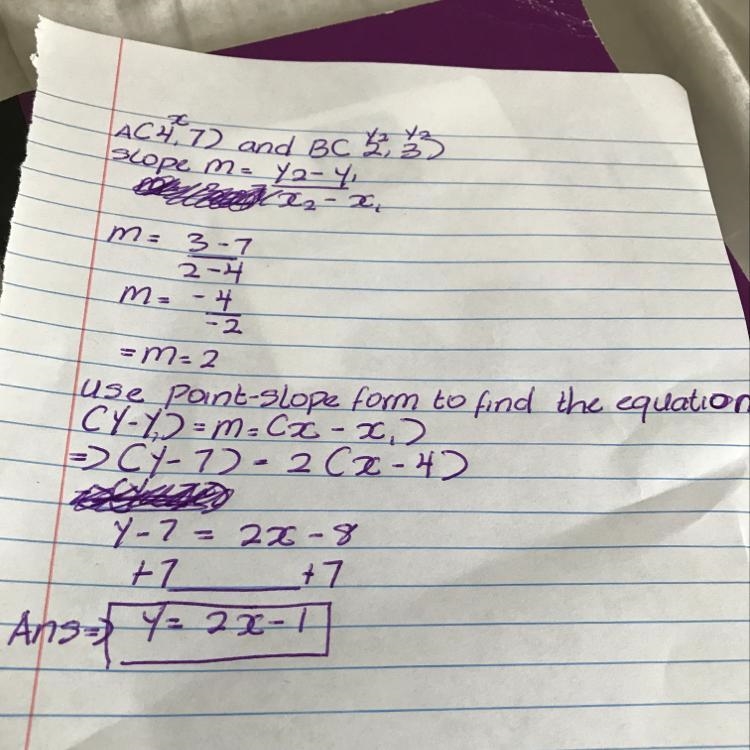 x y2 y2
A(4,7) and B( 2, 3)
slope m = y2 - y1
x2 - x1
m = 3 - 7
2 - 4
m = - 4
-2
= m = 2
use point-slope form to find the equation
(y-y1) = m = (x - x1)
=> (y-7) = 2 (x-4)
y-7 = 2x - 8
+7 +7
Ans => y = 2x - 1